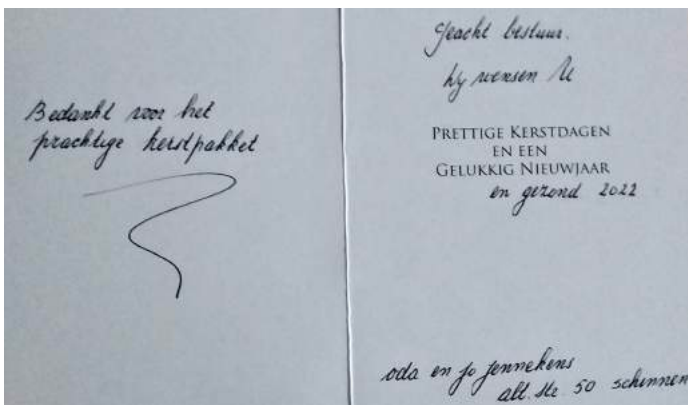 Bedankt voor het
prachtige kerstpakket
Geacht bestuur.
Wy wensen U
PRETTIGE KERSTDAGEN
EN EEN
GELUKKIG NIEUWJAAR
en gezond 2022
oda en Jo Jennekens
50 schinnen